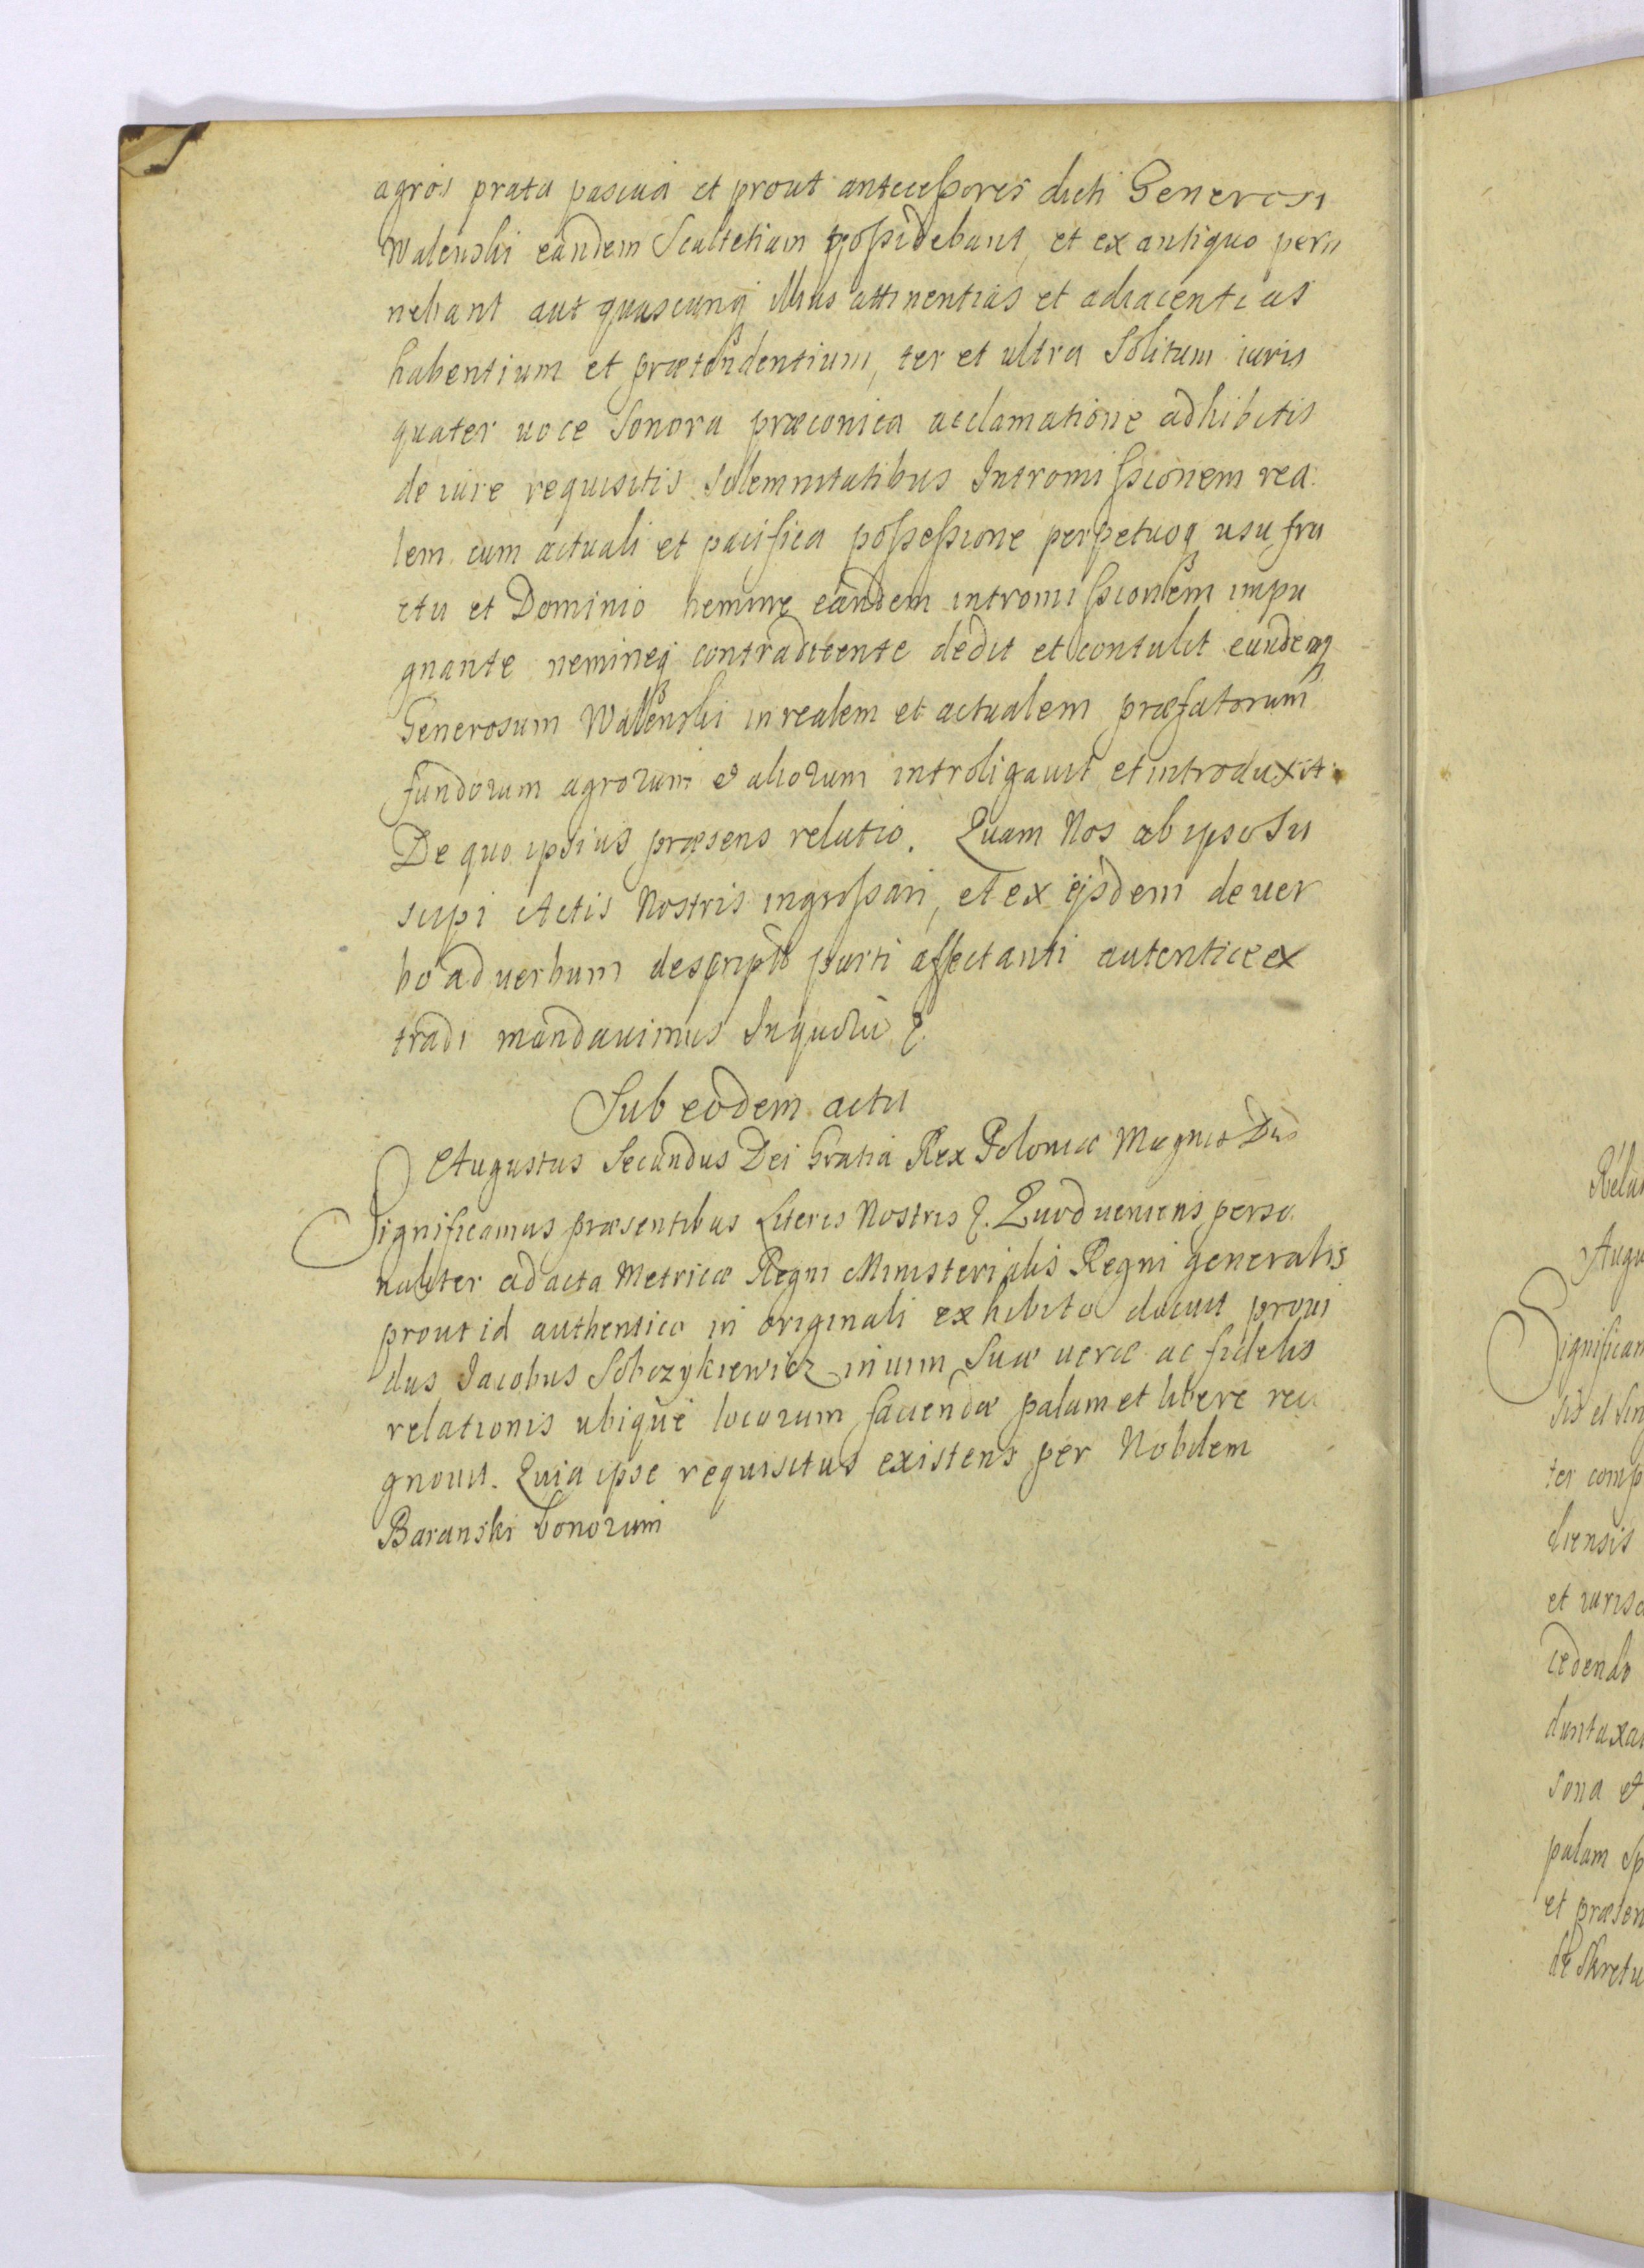 agros prata pascua et prout antecessores dicti Generosi
Walenski eandem Scultetiam possidebant, et ex antiquo perti
nebant aut quascunq illius attinentias et adiacentias
habentium et prætendentium, ter et ultra Solitum iuris
quater uoce Sonora præconica acclamatione adhibitis
de iure requisitis Solemnitatibus Intromissionem rea
lem cum actuali et pacifica possessione perpetuoq usu fru
ctu et Dominio nemine eandem intromissionem impu
gnante nemineq contradicente dedit et contulit eundemq
Generosum Walenski in realem et actualem præfatorum
fundorum agrorum & aliorum introligauit et introduxit.
De quo ipsius præsens relatio. Quam Nos ab ipso Su
scipi Actis Nostris ingrossari, et ex ijsdem de uer
bo ad uerbum descripto parti affectanti autentice ex
tradi mandauimus In quoru &.
Sub eodem actu
Augustus Secundus Dei Gratia Rex Poloniæ Magnus Dux
Significamus præsentibus Literis Nostris &. Quod ueniens perso
naliter ad acta Metricæ Regni Ministerialis Regni generalis
prout id authentico in originali exhibito docuit proui
dus Jacobus Sobczykiewicz in uim Suæ ueræ ac fidelis
relationis ubique locorum faciendæ palam et libere reco
gnouit. Quia ipse requisitus existens per Nobilem
Baranski bonorum
Augu
Significam
ter comp
diensis
et iurisd
cedendo
duntaxa
sona et
palam
et præsen